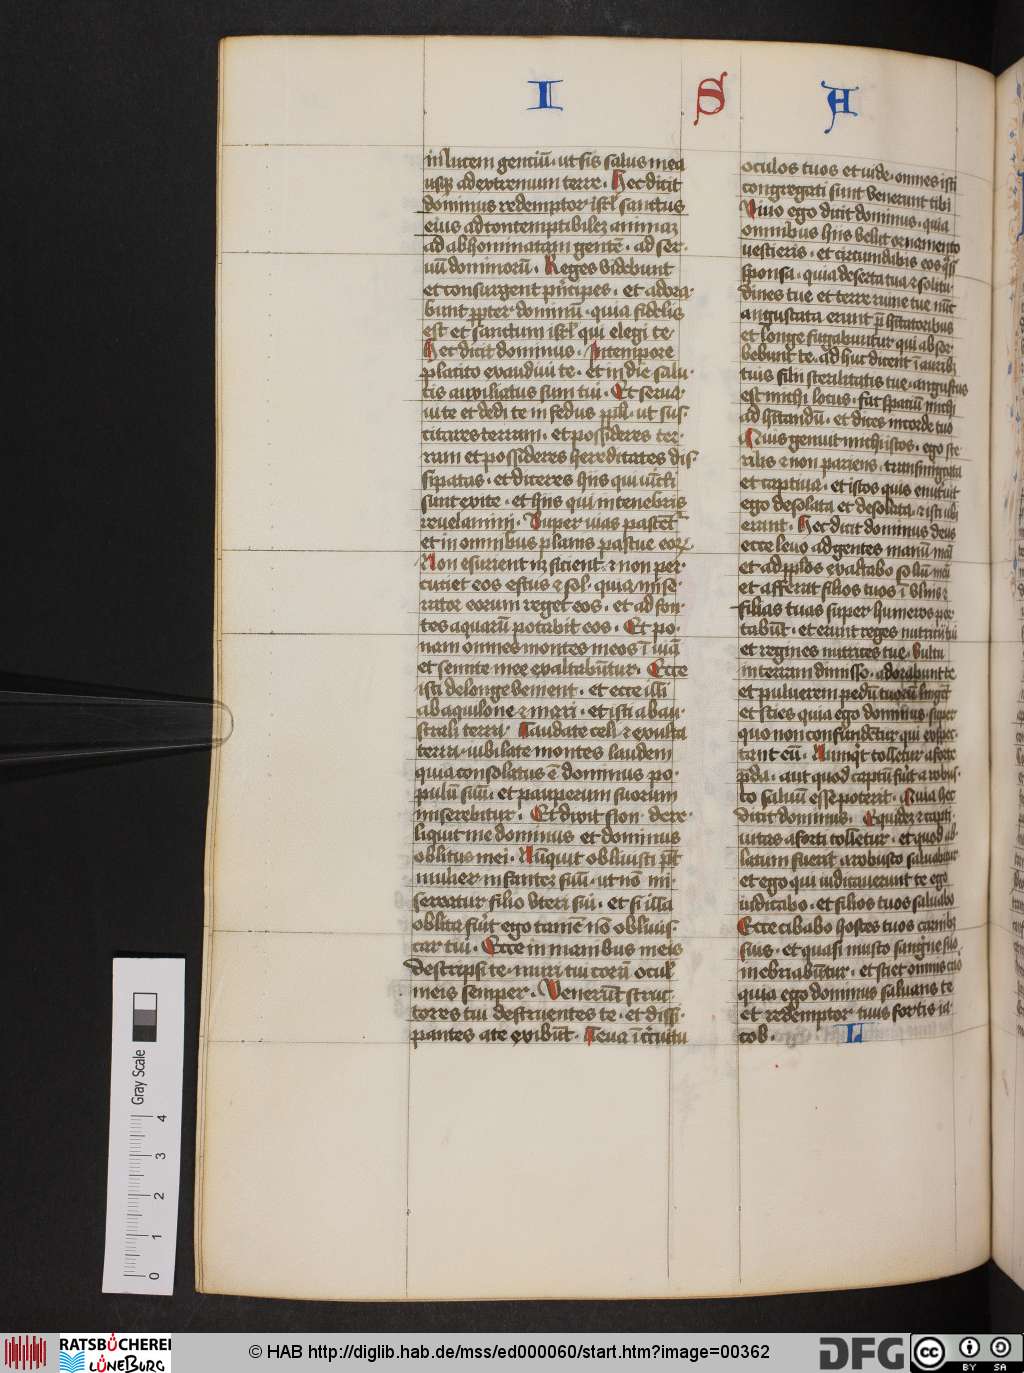 I S A
in lucem gentiū · ut sis salus mea
usqꝫ ad extremum terre · Hec dicit
dominus redemptor isrl̄ sanctus
eius ad contemptibilez animaz
ad abhominatam gentē · ad ser
uū dominorū · Reges videbunt
et consurgent prīcipes · et adora
bunt ꝓpter dominū · quia fidelis
est et sanctum isrl̄ qui elegi te
Hec dicit dominus · In tempore
placito exaudiui te · et in die salu
tis auxiliatus sum tui · Et serua
ui te et dedi te in fedus ppl̄i · ut sus
citares terram · et possideres ter
ram et possideres hereditates dis
sipatas · et diceres hijs qui uīcti
sunt exite · et hijs qui in tenebris
reuelamini · Super uias pascent̄
et in omnibus planis pascue eoꝝ
Non esurient nꝫ sicient · ⁊ non per
cuciet eos estus ⁊ sol · quia mise
rator eorum reget eos · et ad fon
tes aquarū potabit eos · Et po
nam omnes montes meos ī uiā
et semite mee exaltabūtur · Ecce
isti de longe venient · et ecce illi
ab aquilone ⁊ mari · et isti ab au
strali terra · Laudate celi ⁊ exulta
terra · iubilate montes laudem
quia consolatus ē dominus po
pulū suū · et pauperum suorum
miserebitur · Et dixit sion · dere
liquit me dominus et dominus
oblitus mei · Nūquit obliuisci pōt
mulier infantez suū · ut nō mi
sereatur filio uteri sui · et si illa
oblita fu̓it ego tamē nō obliuis
car tui · Ecce in manibus meis
descripsi te · muri tui corā ocul̓
meis semper · Venerūt struc
tores tui destruentes te · et dissi
pantes a te exibūt · Leua ī circuitu
oculos tuos et uide · omnes isti
congregati sunt venerunt tibi
Viuo ego dicit dominus · quia
omnibus hijs velut ornamento
vestieris · et circumdabis eos q̄si
sponsa · quia deserta tua ⁊ solitu
dines tue et terre ruine tue nūc
angusta erunt p̄ hītatoribus
et longe fugabuntur qui absor
bebunt te · ad huc dicent ī auribꝫ
tuis filij sterilitatis tue · angustus
est michi locus · fac spaciū michi
ad hītandū · et dices in corde tuo
Quis genuit michi istos · ego ste
rilis ⁊ non pariens · transmigrata
et captiua · et istos quis enutriuit
ego desolata et desolata · ⁊ isti ubi
erant · Hec dicit dominus deus
ecce leuo ad gentes manū meā
et ad pplos exaltabo signū meū
et afferent filios tuos ī vlnis ⁊
filias tuas super humeros por
tabūt · et erunt reges nutricij tui
et regines nutrices tue · vultu
in terram dimisso · adorabunt te
et puluerem pedū tuorū lingēt
et scies quia ego dominus · super
quo non confundētur qui expec
tant eū · Nunqͥt tolletur a forte
pda · aut quod captū fu̓it a robus
to saluū esse poterit · Quia hec
dicit dominus · Equidez ⁊ capti
uitas a forti tolletur · et quod ab
latum fuerit a robusto saluabitur
et ego qui iudicauerunt te ego
iudicabo · et filios tuos saluabo
Ecce cibabo hostes tuos carnibꝫ
suis · et quasi musto sanguine suo
inebriabūtur · et sciet omnis caro
quia ego dominus saluans te
et redemptor tuus fortis ia
cob · L
Gray Scale
0 1 2 3 4
RATSBÜCHEREI
LÜNEBURG
© HAB http://diglib.hab.de/mss/ed000060/start.htm?image=00362
DFG
cc BY SA